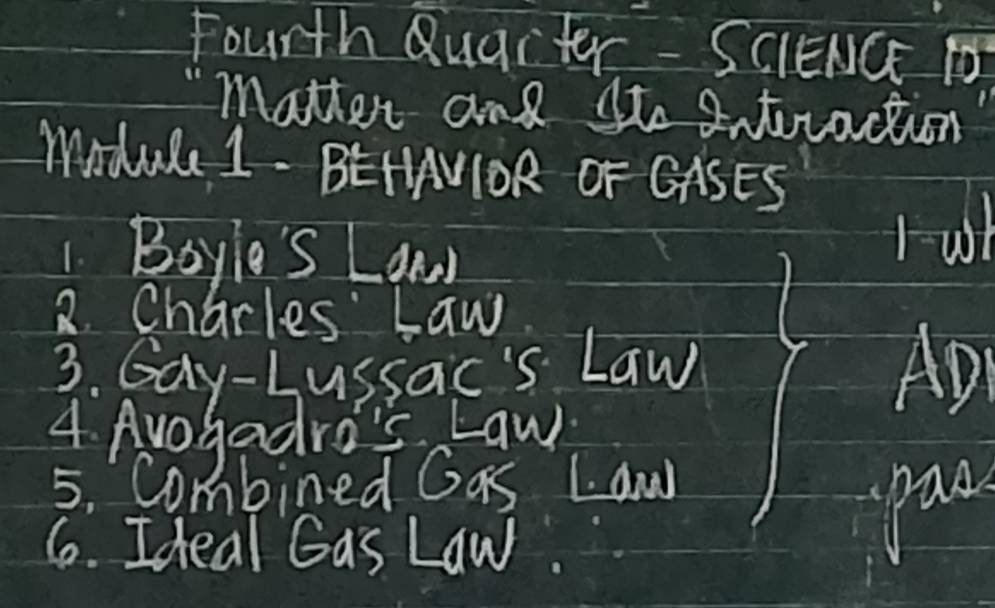 Fourth Quarter - SCIENCE 10
"Matter and Its Interaction"
Module 1 - BEHAVIOR OF GASES
1. Boyle's Law
2. Charles' Law
3. Gay-Lussac's Law
4. Avogadro's Law
5. Combined Gas Law
6. Ideal Gas Law.
1-wh
ADM
pass